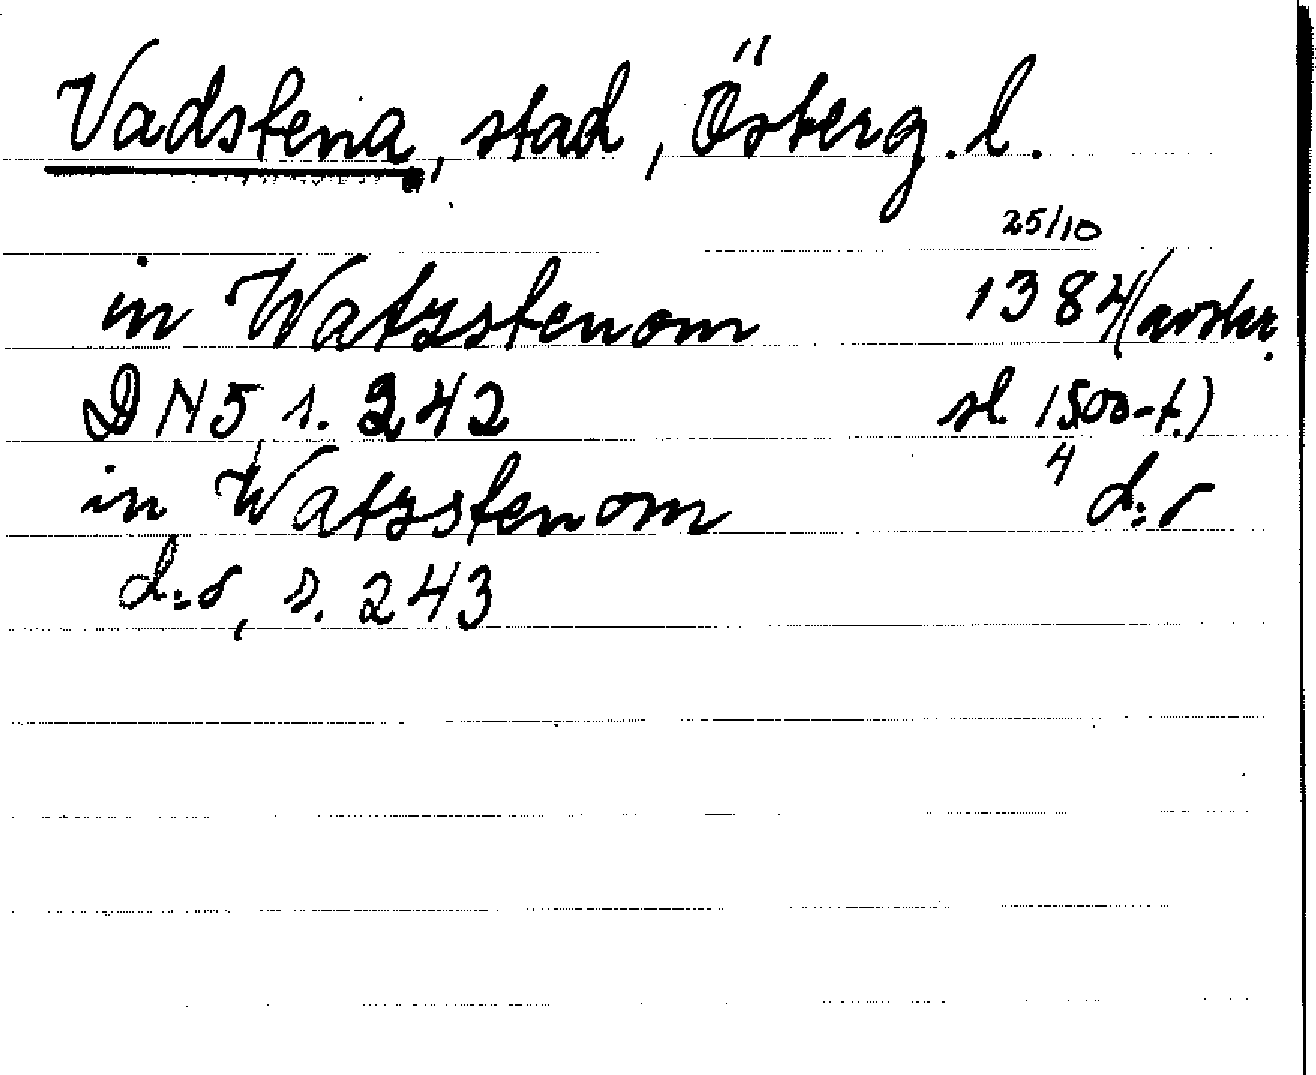 Vadstena, stad, Österg. l.
25/10
in Watzstenom 1384 (avskr.
DN 5 s. 242 sl. 1500-t.)
in Watzstenom d:o
d:o, s. 243